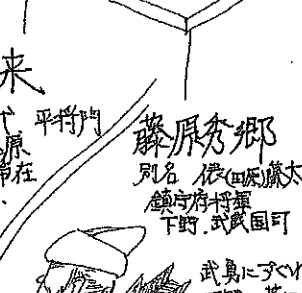 来
平将門
原
市在
藤原秀郷
別名 俵(田原)藤太
鎮守府将軍
下野.武蔵国司
武勇にすぐれ